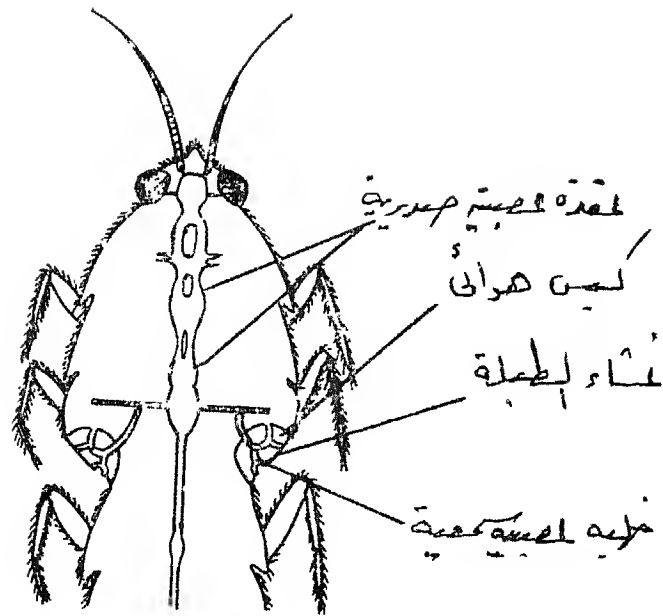 لعقدة لعصبية صدرية
كيس هوائى
غشاء الطبلة
خلية عصبية سمعية